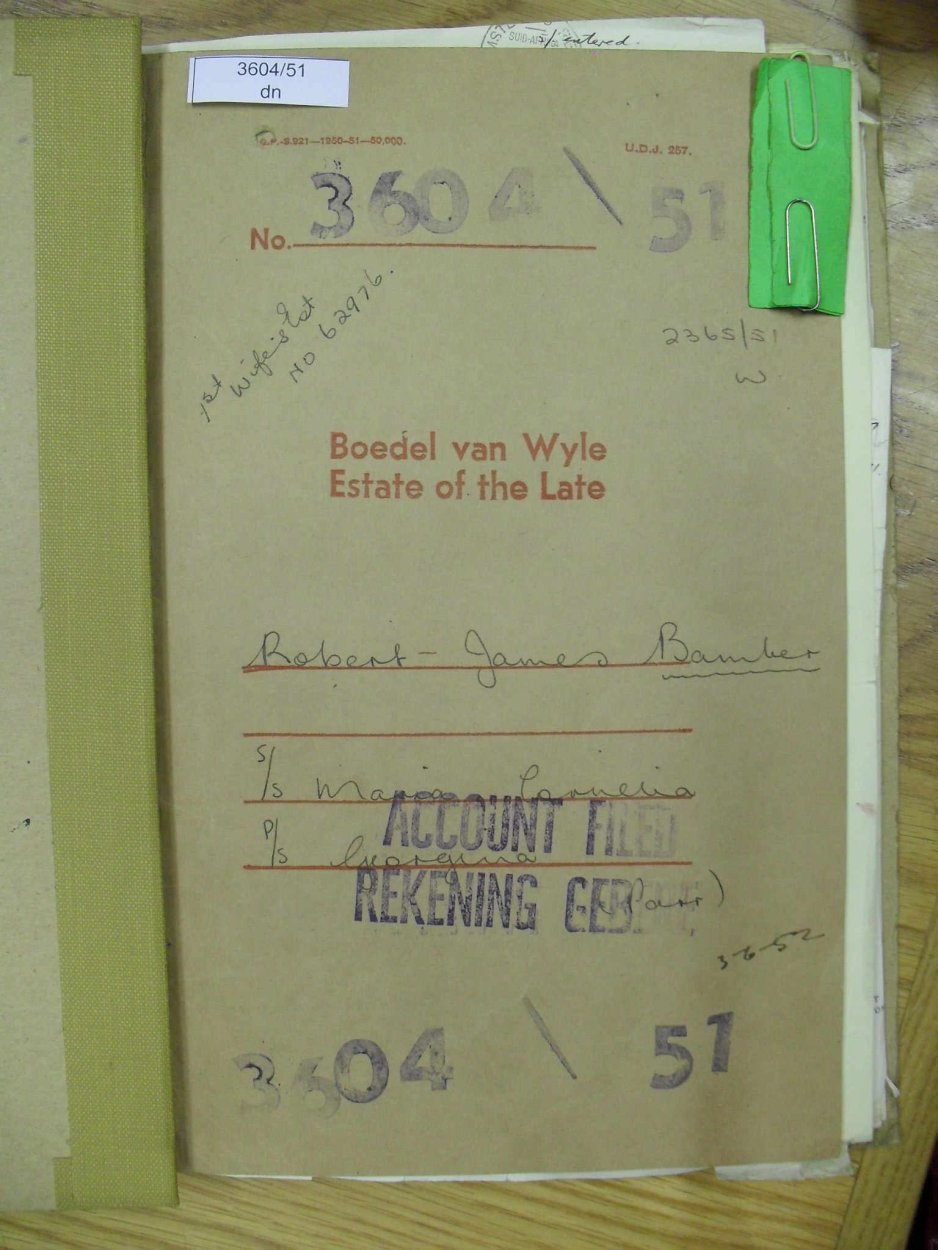 s/entered.
3604/51
dn
G.P.-S.921—1950-51—50,000.
U.D.J. 257.
No. 3604 \ 51
1st Wife's Est
NO 62976.
2365/51
W
Boedel van Wyle
Estate of the Late
Robert - James Bamber
S/S Maria Cornelia
ACCOUNT FILED
P/S Georgina
REKENING
(Parr)
3-6-52
3604 \ 51